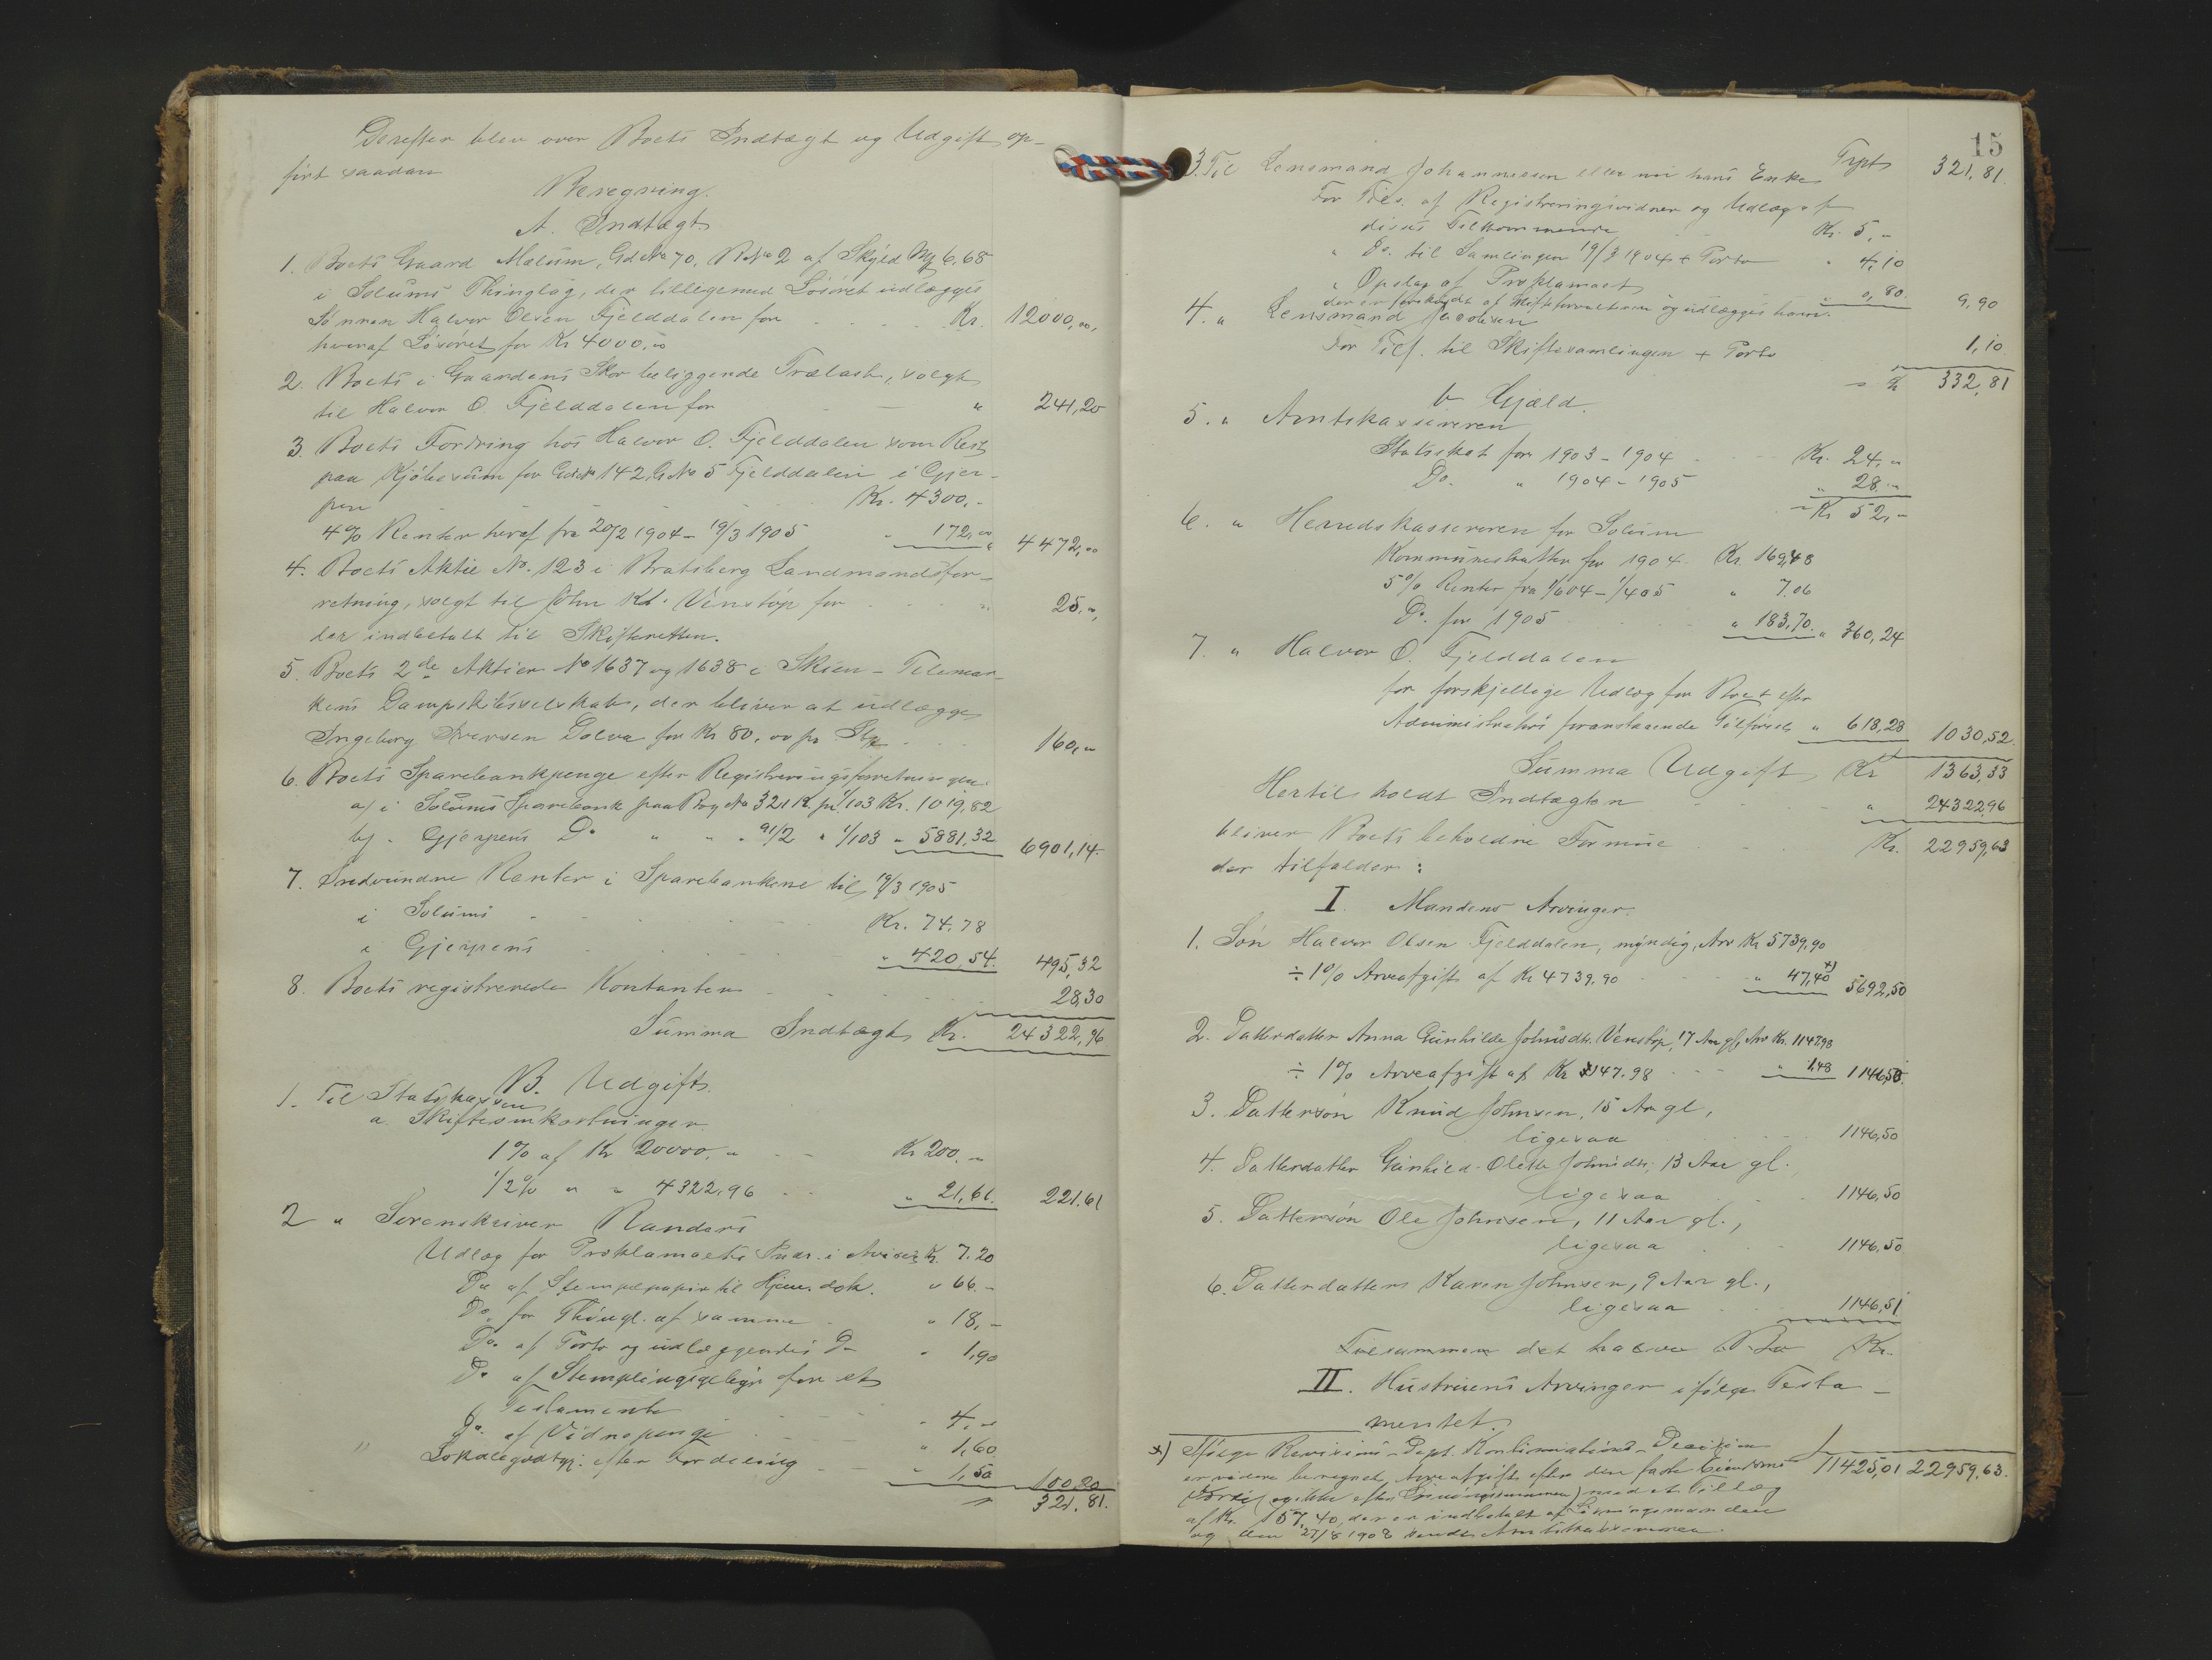 Derefter blev over Boets Indtægt og Udgift op-
ført saadan
Beregning.
A. Indtægt
1. Boets Gaard Mælum, Gd No 70, B No 2 af Skyld Mk 6,68
i Solums Thinglag, der tilligemed Løsøret udlægges
Sønnen Halvor Olsen Fjelddalen for Kr. 12000,00,
hvoraf Løsøret for Kr 4000,00
2. Boets i Gaardens Skov beliggende Trælast, solgt
til Halvor O. Fjelddalen for " 241,20
3. Boets Fordring hos Halvor O. Fjelddalen som Rest
paa Kjøbesum for Gd No 142, B No 5 Fjelddalen i Gjer-
pen Kr. 4300,-
4% Renter heraf fra 20/2 1904 - 19/3 1905 " 172,00 " 4472,00
4. Boets Aktie No. 123 i Bratsberg Landmandsfor-
retning, solgt til John Kl. Venstøp for " 25,-
der indbetalt til Skifteretten.
5. Boets 2de Aktier No 1637 og 1638 i Skien - Telemar-
kens Dampskibsselskab, der bliver at udlægge
Ingeborg Iversen Dolva for Kr 80,00 pr Stk 160,-
6. Boets Sparebankpenge efter Registreringsforretningen
a) i Solums Sparebank paa Bog No 321 K. pr 1/1 03 Kr. 1019,82
b) - Gjerpens Do " " " 91/2 " 1/1 03 " 5881,32 6901,14
7. Indvundne Renter i Sparebankene til 19/3 1905
i Solums Kr. 74,78
i Gjerpens " 420,54. 495,32
8. Boets registrerede Kontanter 28,30
Summa Indtægt Kr. 24322,96
B. Udgift.
1. Til Statskassen
a. Skifteomkostninger.
1% af Kr 20000,- Kr 200,-
1/2% " " 4322,96 " 21,61. 221.61
2 " Sorenskriver Randers
Udlæg for Proklamaets Indr. i Aviser Kr. 7.20
Do af Stempelpapir til Hjem. dok. " 66.-
Do. for Thingl. af samme " 18,-
Do. af Porto og udlæggendes Do " 1,90
Do af Stemplingsgebyr for et
Testamente " 4,-
Do. af Vidnepenge " 1,60
" Lokalegodtgj. efter Fordeling " 1,50 100,20
" 321.81.
15
Trpt 321,81.
3. Til Lensmand Johannessen eller nu hans Enke
For Tils. af Registreringsvidner og Udlæg af
disses Tilkommende Kr. 5,-
" Do. til Samlingen 19/3 1904 + Porto " 4,10
" Opslag af Proklamaet " 0,80. 9,90
der er forskudt af Skifteforvalteren og udlægges ham.
4. " Lensmand Jacobsen
For Tils. til Skiftesamlingen + Porto 1,10
" Kr 332,81
b Gjæld.
5. " Amtskassereren
Statsskat for 1903 - 1904 Kr. 24,-
Do. " 1904 - 1905 " 28.-
Kr 52,-
6. " Herredskassereren for Solum
Kommuneskatter for 1904 Kr. 169,48
5% Renter fra 1/6 04 - 1/4 05 " 7.06
Do. for 1905 " 183,70. " 360,24
7. " Halvor O. Fjelddalen
for forskjellige Udlæg for Boet efter
Administrators foranstaaende Tilførsel " 618,28 1030,52.
Summa Udgift Kr 1363,33
Hertil holdt Indtægten " 24322,96
bliver Boets beholdne Formue Kr. 22959,63
der tilfalder:
I. Mandens Arvinger.
1. Søn Halvor Olsen Fjelddalen, myndig, Arv Kr 5739,90
÷ 1% Arveafgift af Kr 4739.90 " 47,40 x) 5692,50
2. Datterdatter Anna Gunhilde Johnsdtr. Venstøp, 17 Aar gl, Arv Kr. 1147,98
÷ 1% Arveafgift af Kr 147.98 " 1,48 1146,50.
3. Dattersøn Knud Johnsen, 15 Aar gl,
ligesaa 1146,50
4. Datterdatter Gunhild Olette Johnsdtr, 13 Aar gl.
ligesaa 1146,50
5. Dattersøn Ole Johnsen, 11 Aar gl.,
ligesaa 1146,50
6. Datterdatter Karen Johnsen, 9 Aar gl.,
ligesaa 1146,51
Tilsammen det halve Bo Kr.
II. Hustruens Arvinger ifølge Testa-
mentet.
11425,01 22959,63.
x) Ifølge Revisions-Dept. Decision
er videre beregnet Arveafgift efter den faste Eiendoms
Værdi (og ikke efter ) med et Tillæg
af Kr. 157,40, der er indbetalt af
og den 27/8 1908 sendt Amtskassereren.